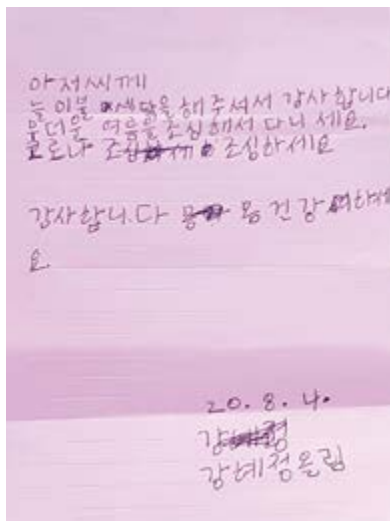 아저씨께
늘 이불 세탁을 해주셔서 감사합니다
무더운 여름을 조심해서 다니세요.
코로나 조심하세요
감사합니다 몸 건강하세
요
20. 8. 4.
강혜정올림